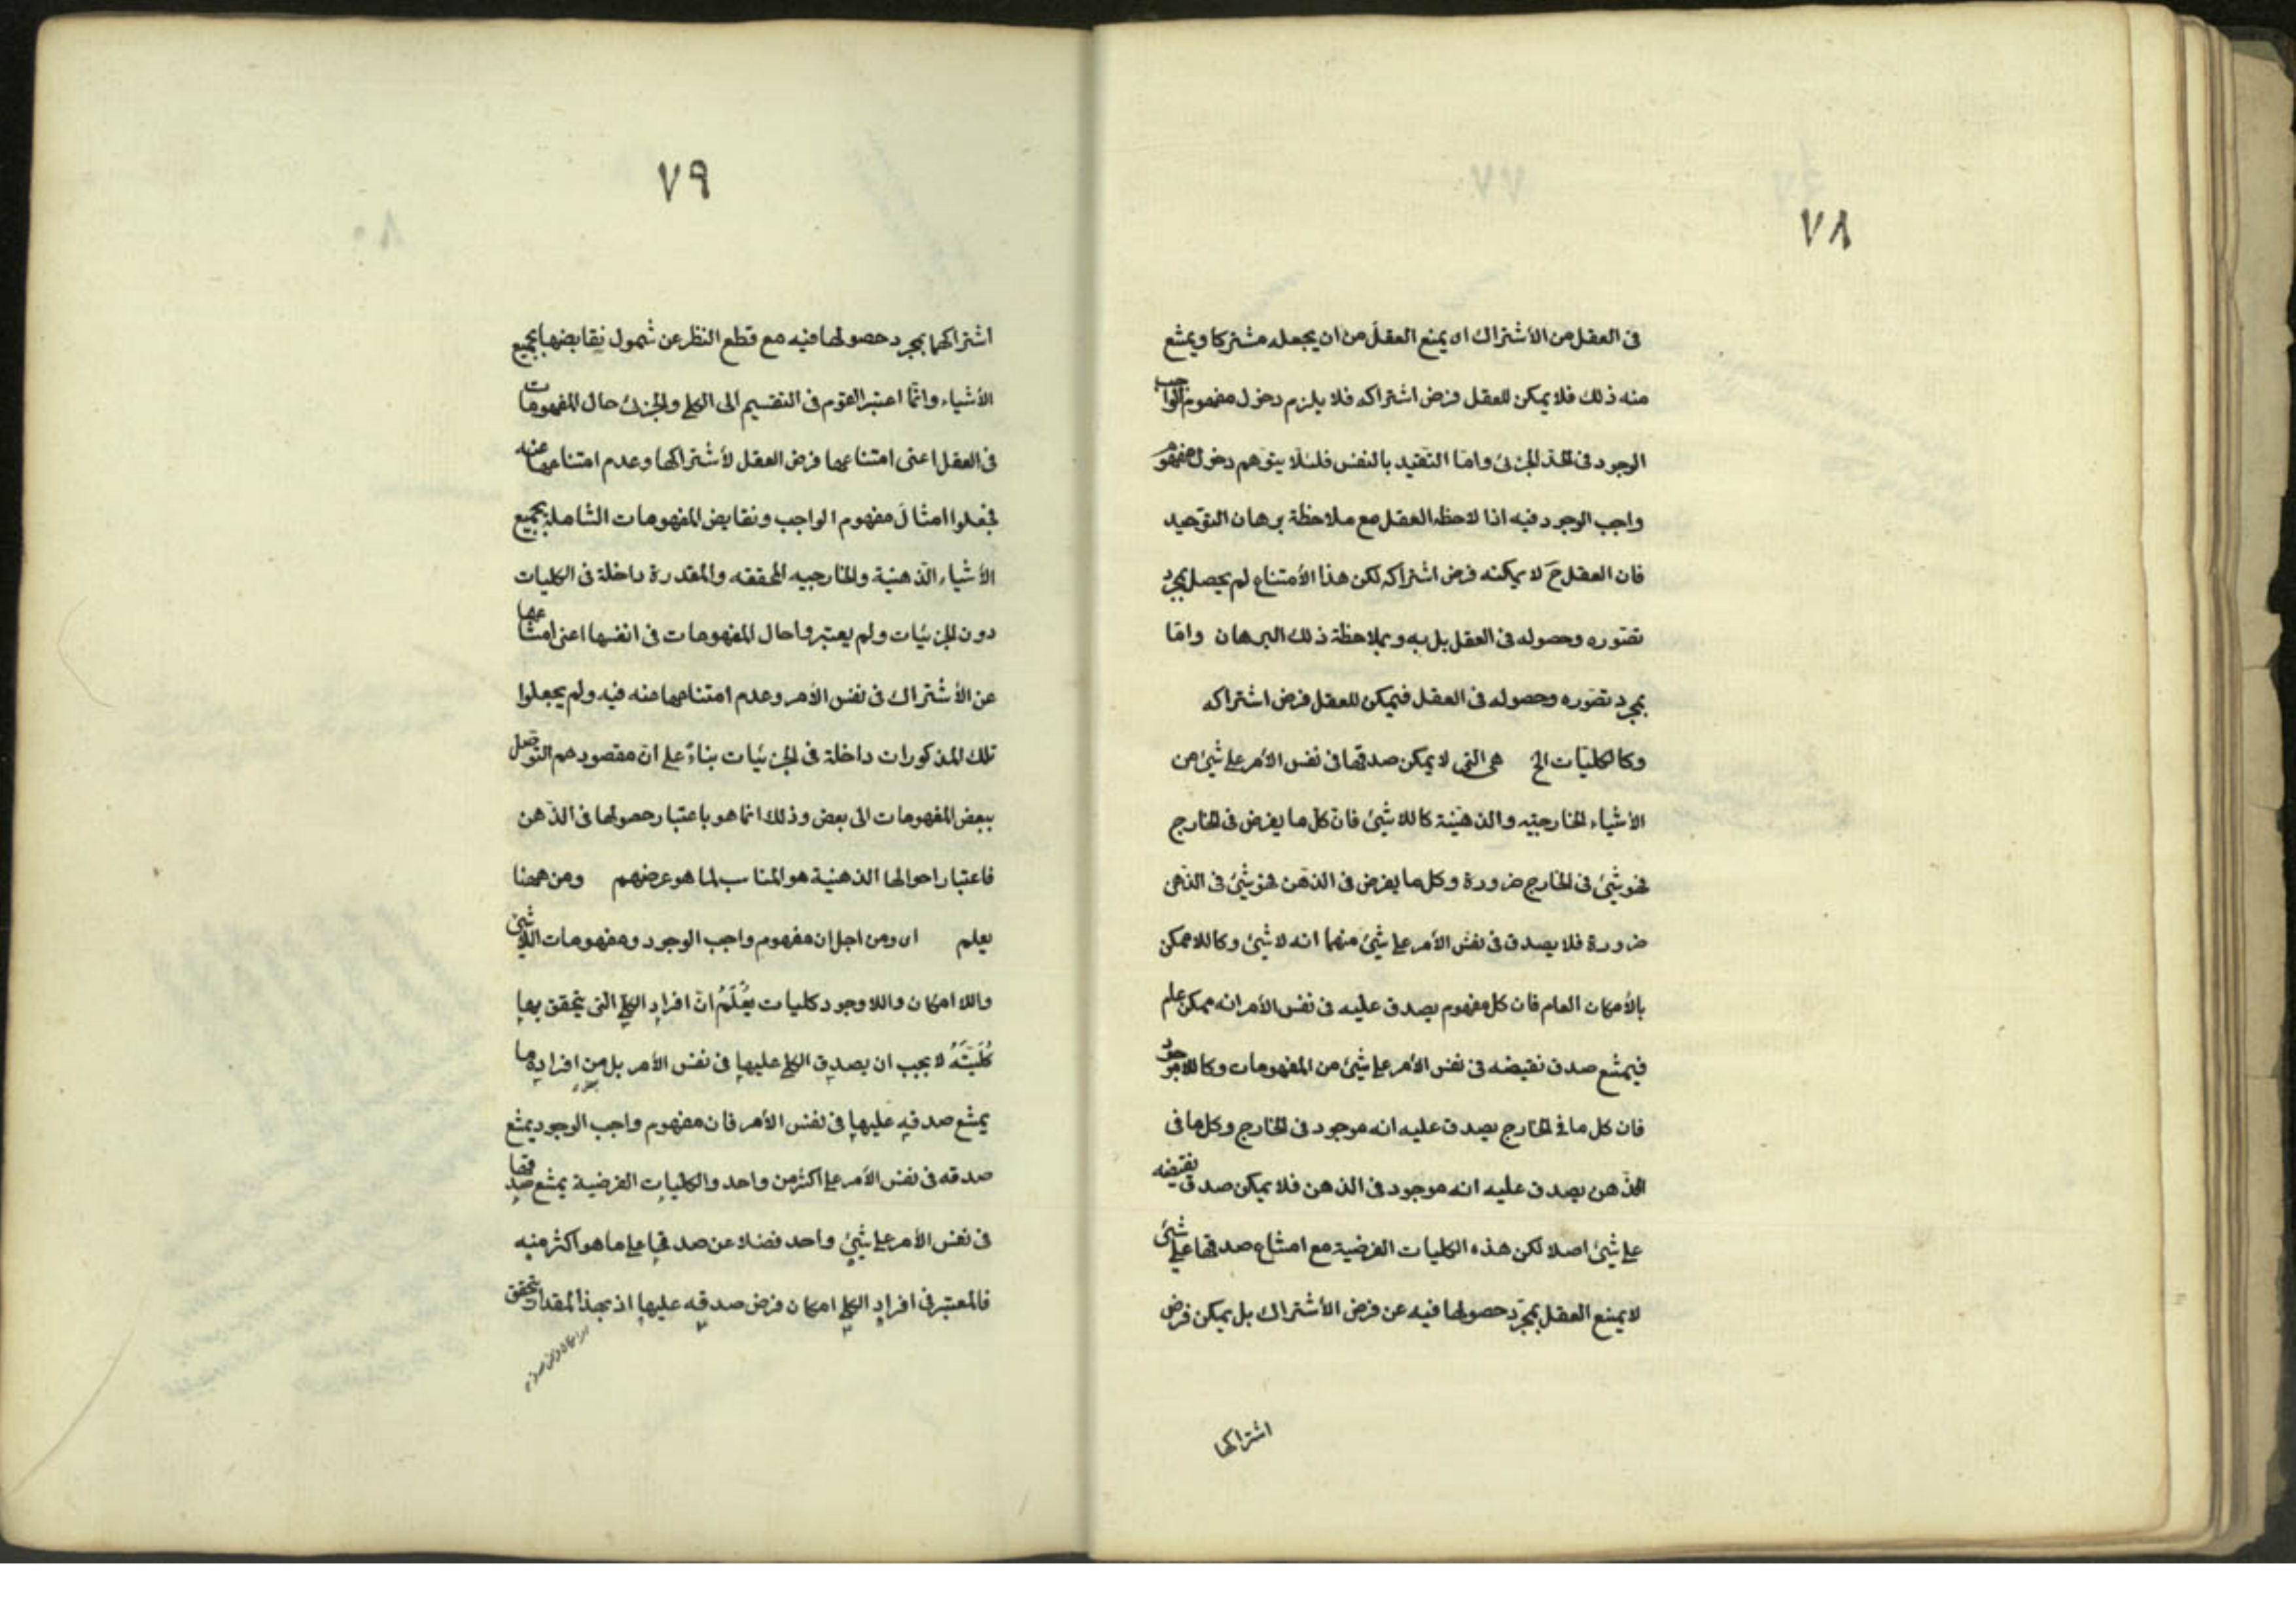 ٧٨
فى العقل من الأشتراك اى يمنع العقل من ان يجعله مشتركا ويمتنع
منه ذلك فلا يمكن للعقل فرض اشتراكه فلا يلزم دخول مفهوم الواجب
الوجود فى الحد الجزئى واما التقيد بالنفس فلئلا يتوهم دخول مفهوم
واجب الوجود فيه اذا لاحظه العقل مع ملاحظة برهان التوحيد
فان العقل ح لا يمكنه فرض اشتراكه لكن هذا الأمتناع لم يحصل بمجرد
تصوره وحصوله فى العقل بل به وبملاحظة ذلك البرهان واما
بمجرد تصوره وحصوله فى العقل فيمكن للعقل فرض اشتراكه
وكالكليات الخ هى التى لا يمكن صدقها فى نفس الأمر على شئ من
الأشياء الخارجيه والذهنية كاللا شئ فان كل ما يفرض فى الخارج
فهو شئ فى الخارج ضرورة وكل ما يفرض فى الذهن فهو شئ فى الذهن
ضرورة فلا يصدق فى نفس الأمر على شئ منهما انه لا شئ وكاللاممكن
بالأمكان العام فان كل مفهوم يصدق عليه فى نفس الأمر انه ممكن عام
فيمتنع صدق نقيضه فى نفس الأمر على شئ من المفهومات وكاللاموجود
فان كل ما فى الخارج يصدق عليه انه موجود فى الخارج وكل ما فى
الذهن يصدق عليه انه موجود فى الذهن فلا يمكن صدق نقيضه
على شئ اصلا لكن هذه الكليات الفرضية مع امتناع صدقها على شئ
لا يمنع العقل بمجرد حصولها فيه عن فرض الأشتراك بل يمكن فرض
اشتراكها
٧٩
اشتراكها بمجرد حصولها فيه مع قطع النظر عن شمول نقايضها بجميع
الأشياء وانما اعتبر القوم فى التقسيم الى الكلى والجزئ حال المفهومات
فى العقل اعنى امتناعها فرض العقل لأشتراكها وعدم امتناعها عنه
فجعلوا امثال مفهوم الواجب ونقايض المفهومات الشاملة بجميع
الأشياء الذهنية والخارجيه المحققه والمقدرة داخلة فى الكليات
دون الجزئيات ولم يعتبروا حال المفهومات فى انفسها اعنى امتناعها
عن الأشتراك فى نفس الأمر وعدم امتناعها منه فيه ولم يجعلوا
تلك المذكورات داخلة فى الجزئيات بناءً على ان مقصودهم التوصل
ببعض المفهومات الى بعض وذلك انما هو باعتبار حصولها فى الذهن
فاعتبار احوالها الذهنية هو المناسب لما هو غرضهم ومن ههنا
يعلم اى ومن اجل ان مفهوم واجب الوجود ومفهومات اللاشئ
واللا امكان واللا وجود كليات يُعْلَمُ ان افراد الكلى التى يتحقق بها
كليتَّهُ لا يجب ان يصدق الكلى عليها فى نفس الأمر بل من افراده ما
يمتنع صدقه عليها فى نفس الأمر فان مفهوم واجب الوجود يمتنع
صدقه فى نفس الأمر على اكثر من واحد والكليات الفرضية يمتنع صدقها
فى نفس الأمر على شئ واحد فضلا عن صدقها على ما هو اكثر منه
فالمعتبر فى افراد الكلى امكان فرض صدقه عليها اذ بهذا المقدار يتحقق